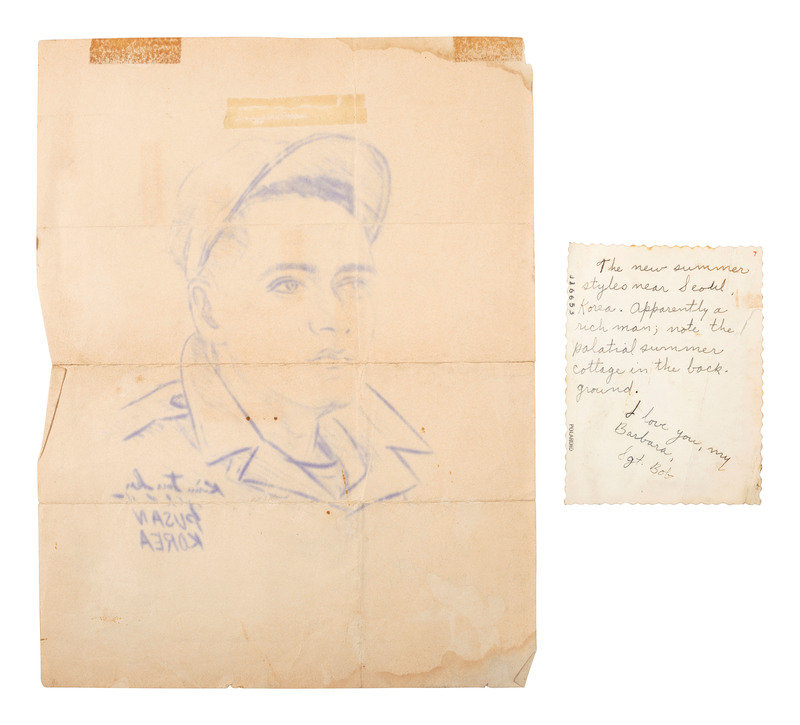 PUSAN
KOREA
The new summer
styles near Seoul,
Korea. Apparently a
rich man; note the
palatial summer
cottage in the back-
ground.
I love you, my
Barbara,
Sgt. Bob
J16653
POLAROID